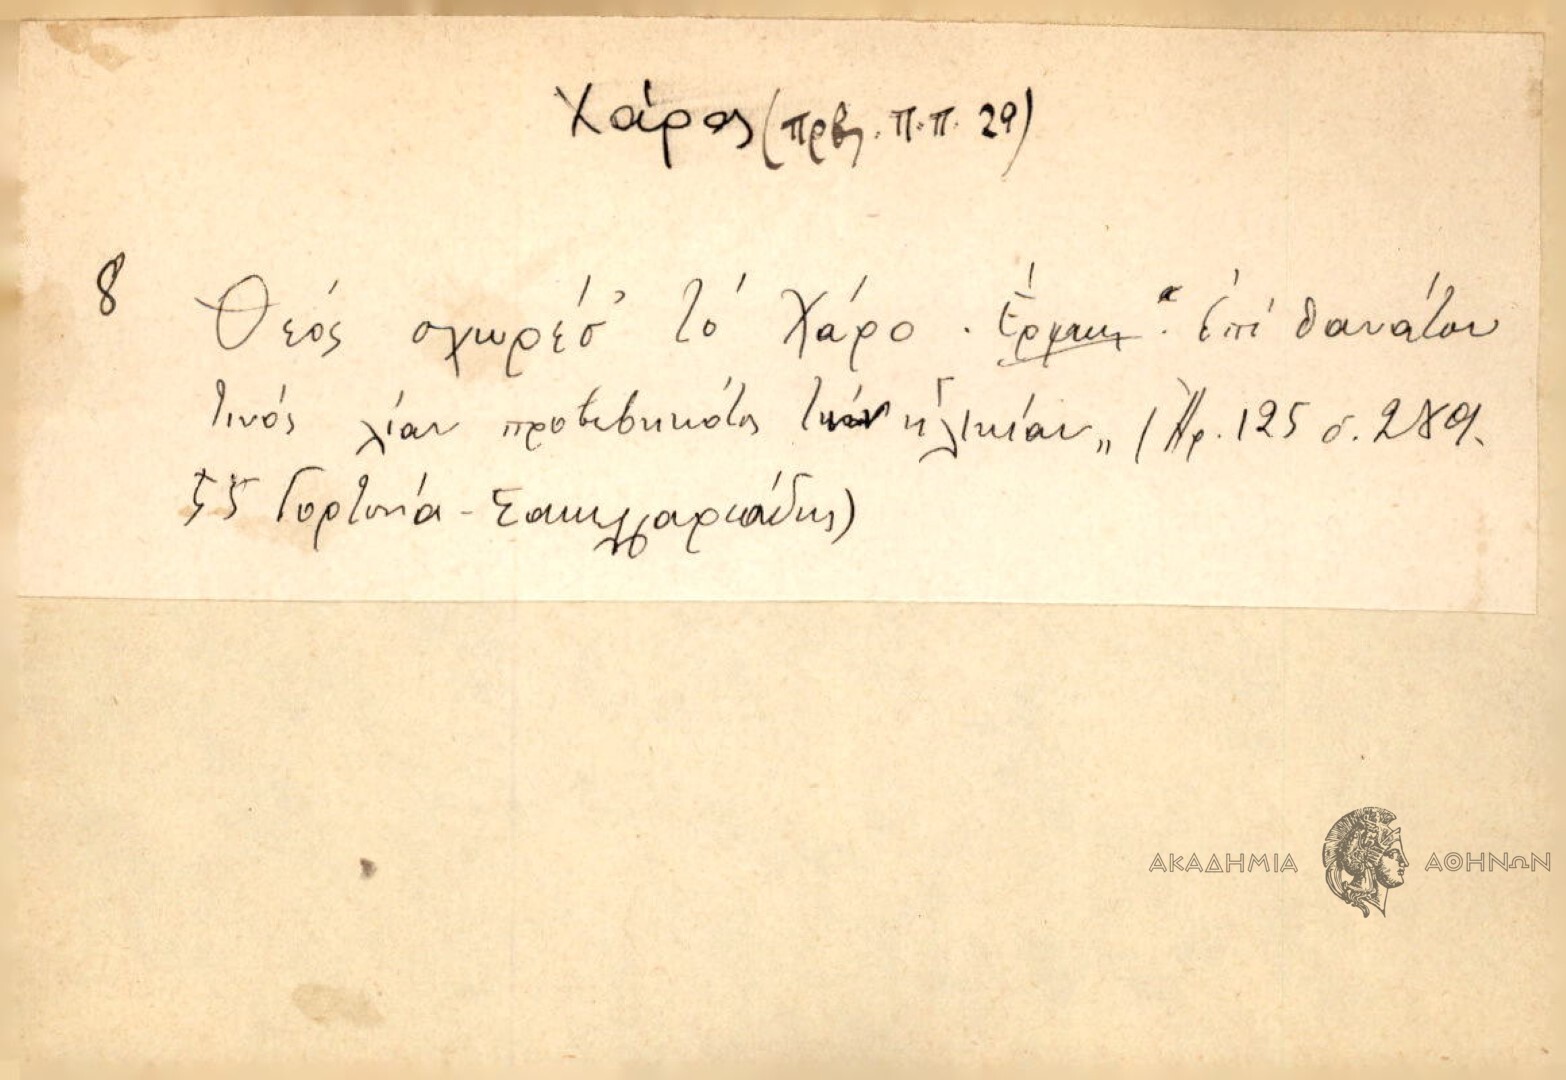 Χάρος (πρβ. Π.π. 29)
8 Θεός σχωρέσ' τό Χάρο. Ἑρμην. "Ἐπί θανάτου
τινός λίαν προβεβηκότος τήν ἡλικίαν„ (Ἀρ. 125 σ. 289.
55 Γορτυνία - Σακελλαριάδης)
ΑΚΑΔΗΜΙΑ ΑΘΗΝΩΝ